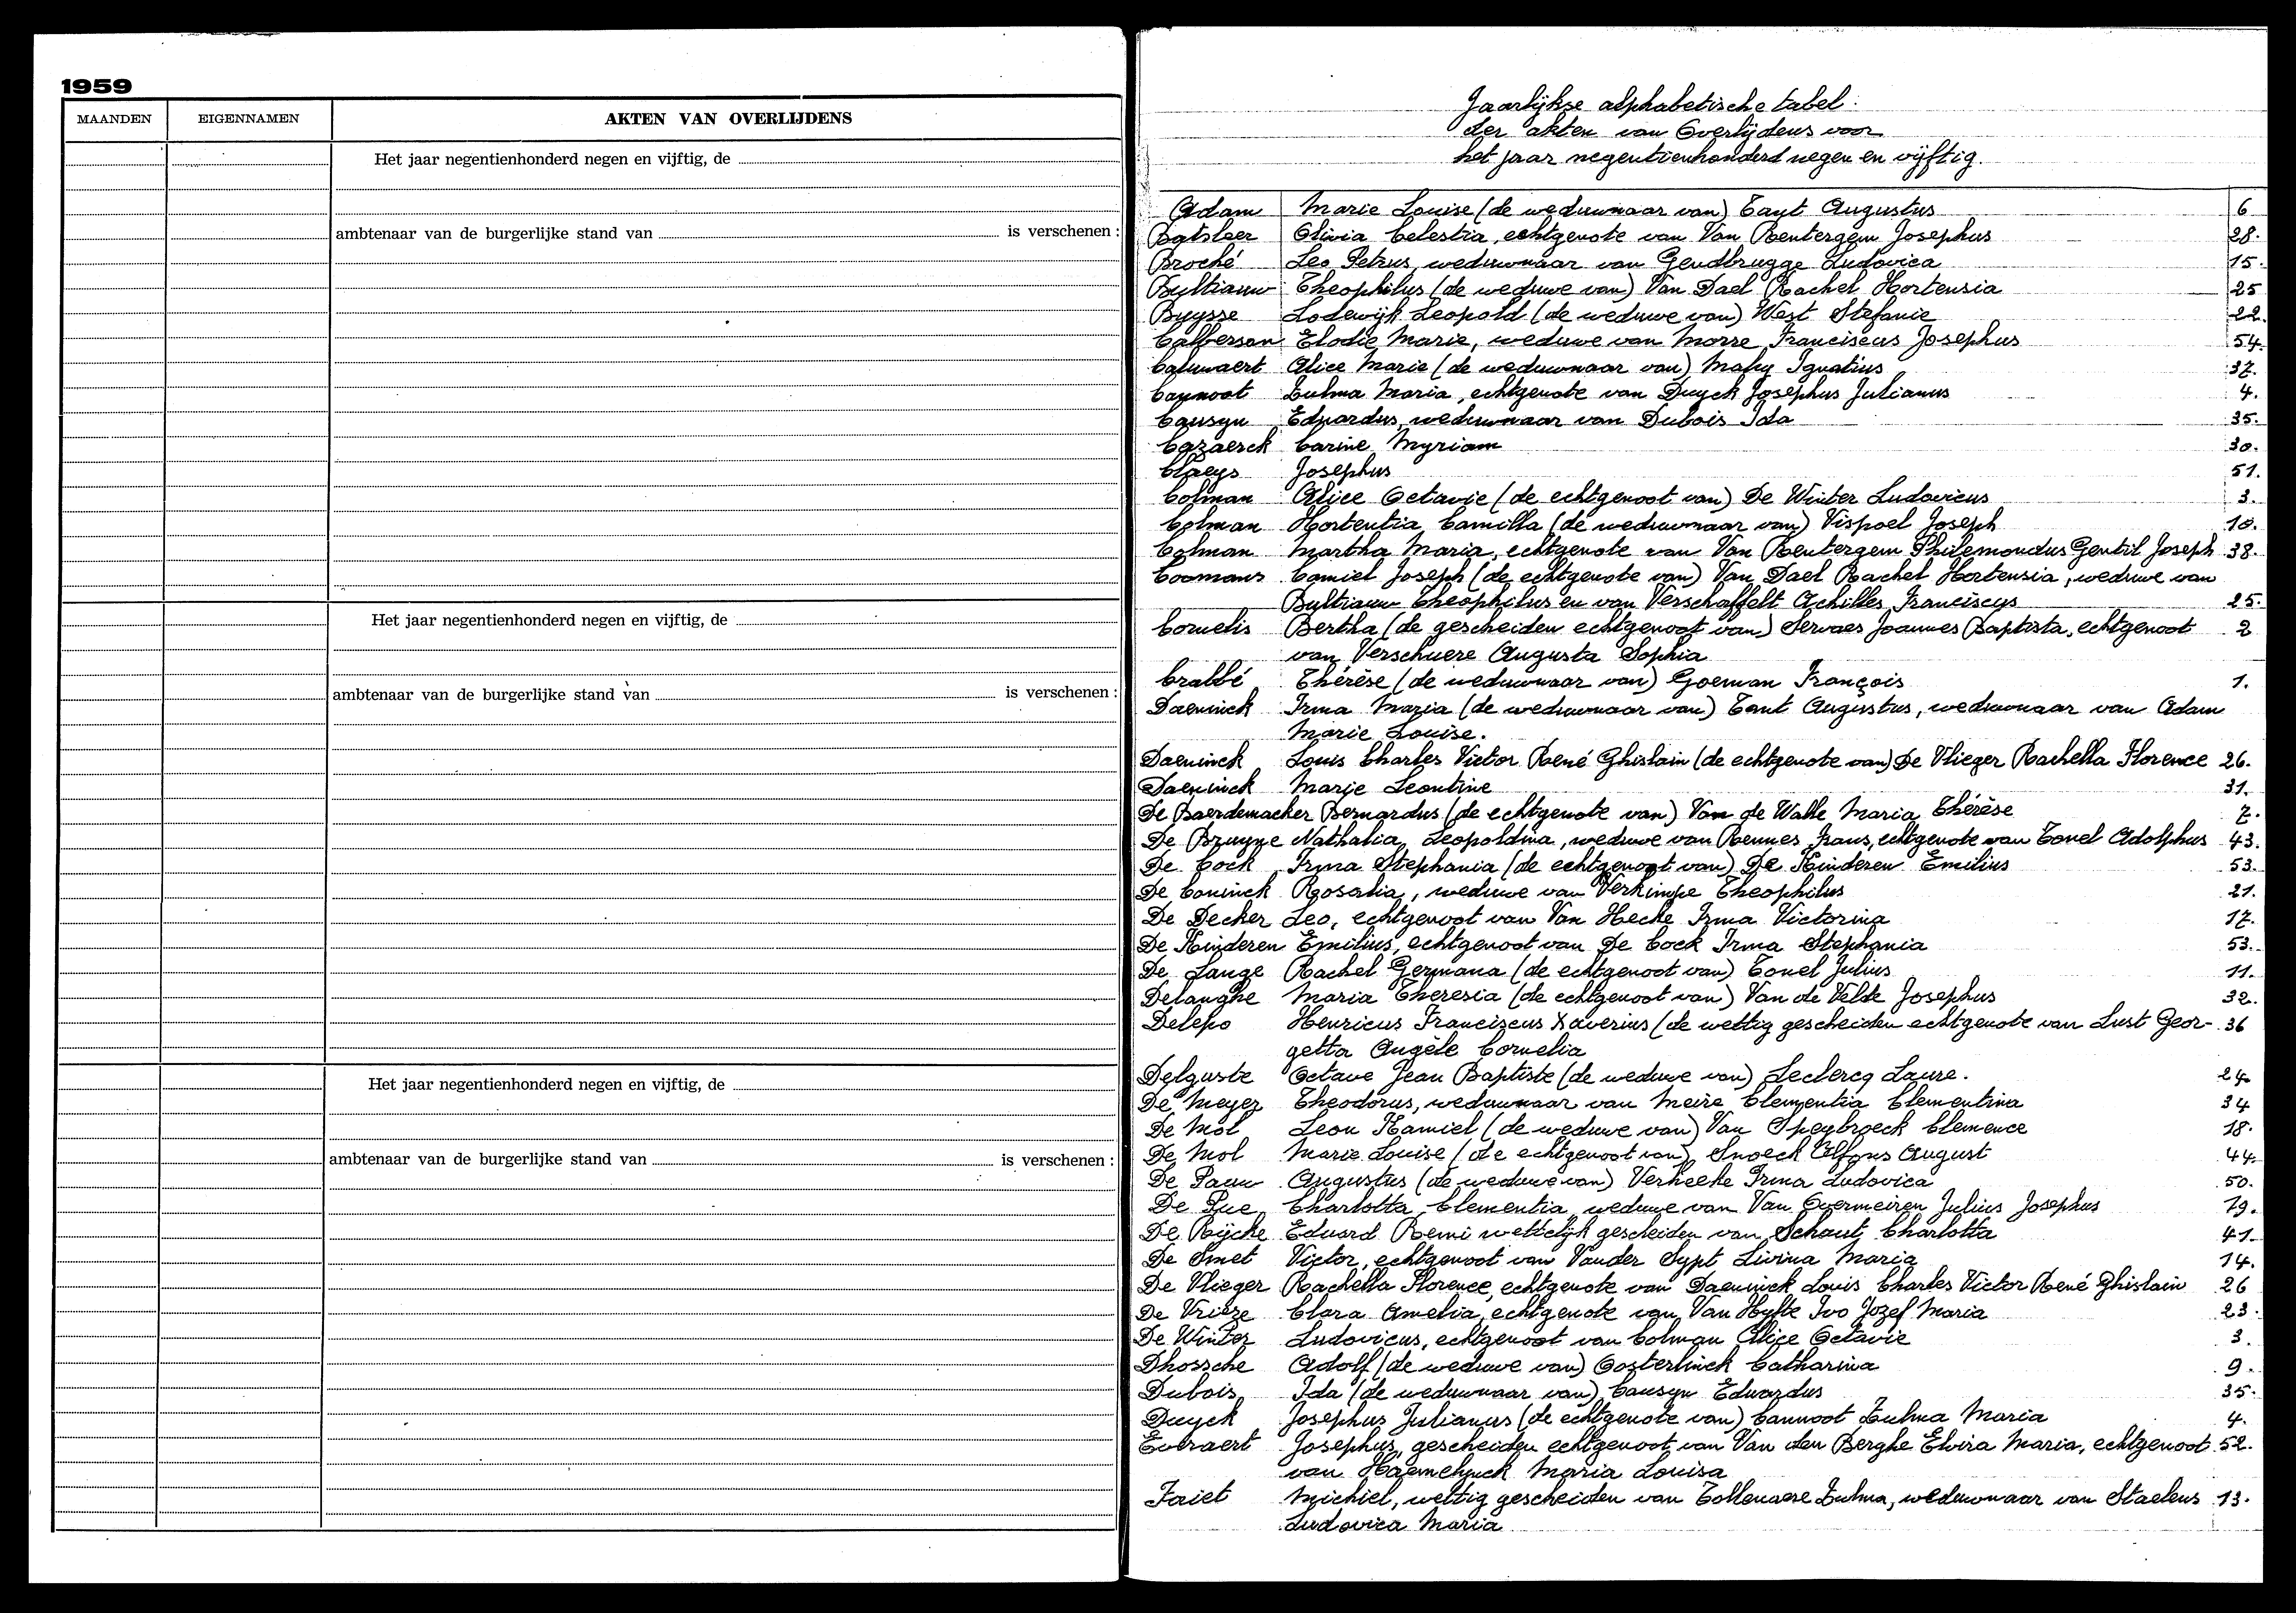 1959
MAANDEN EIGENNAMEN AKTEN VAN OVERLIJDENS
Het jaar negentienhonderd negen en vijftig, de
ambtenaar van de burgerlijke stand van is verschenen :
Het jaar negentienhonderd negen en vijftig, de
ambtenaar van de burgerlijke stand van is verschenen :
Het jaar negentienhonderd negen en vijftig, de
ambtenaar van de burgerlijke stand van is verschenen :
Jaarlijkse alphabetische tabel
der akten van Overlijdens voor
het jaar negentienhonderd negen en vijftig.
Adam Marie Louise (de weduwnaar van) Tant Augustus 6
Batsleer Olivia Celestia, echtgenote van Van Rentergem Josephus 28.
Broché Leo Petrus, weduwnaar van Gendbrugge Ludovica 15.
Bultiauw Theophilus (de weduwe van) Van Dael Rachel Hortensia 25
Buysse Lodewijk Leopold (de weduwe van) West Stefanie 22.
Calberson Elodie Marie, weduwe van Morre Franciscus Josephus 54.
Caluwaert Alice Marie (de weduwnaar van) Mahy Ignatius 37.
Cannoot Zulma Maria, echtgenote van Duyck Josephus Julianus 4.
Causyn Eduardus, weduwnaar van Dubois Ida 35.
Cazaerck Carine Myriam 30.
Claeys Josephus 51.
Colman Alice Octavie (de echtgenoot van) De Winter Ludovicus 3.
Colman Hortentia Camilla (de weduwnaar van) Vispoel Joseph 10.
Colman Martha Maria, echtgenote van Van Rentergem Philemondus Gentil Joseph 38.
Coomans Camiel Joseph (de echtgenote van) Van Dael Rachel Hortensia, weduwe van
Bultiauw Theophilus en van Verschaffelt Achilles Franciscus 25.
Cornelis Bertha (de gescheiden echtgenoot van) Servaes Joannes Baptista, echtgenoot 2
van Verschuere Augusta Sophia
Crabbé Thérèse (de weduwnaar van) Goeman François 1.
Daeninck Irma Maria (de weduwnaar van) Tant Augustus, weduwnaar van Adam
Marie Louise.
Daeninck Louis Charles Victor René Ghislain (de echtgenote van) De Vlieger Rachella Florence 26.
Daeninck Marie Leontine 31.
De Baerdemacker Bernardus (de echtgenote van) Van de Walle Maria Thérèse 7.
De Bruyne Nathalia Leopoldina, weduwe van Rennes Frans, echtgenote van Tonel Adolphus 43.
De Cock Irma Stephania (de echtgenoot van) De Kinderen Emilius 53.
De Coninck Rosalia, weduwe van Verkimpe Theophilus 21.
De Decker Leo, echtgenoot van Van Hecke Irma Victorina 17.
De Kinderen Emilius, echtgenoot van De Cock Irma Stephania 53.
De Lange Rachel Germana (de echtgenoot van) Tonel Julius 11.
Delanghe Maria Theresia (de echtgenoot van) Van de Velde Josephus 32.
Delepo Henricus Franciscus Xaverius (de wettig gescheiden echtgenote van Lust Geor- 36
getta Angèle Cornelia
Delguste Octave Jean Baptiste (de weduwe van) Leclercq Laure. 24.
De Meyer Theodorus, weduwnaar van Meire Clementia Clementina 34
De Mol Leon Kamiel (de weduwe van) Van Speybroeck Clemence 18.
De Mol Marie Louise (de echtgenoot van) Snoeck Alfons August 44.
De Pauw Augustus (de weduwe van) Verheeke Irma Ludovica 50.
De Pue Charlotta Clementia, weduwe van Van Overmeiren Julius Josephus 19.
De Rijcke Eduard Remi wettelijk gescheiden van Schaut Charlotta 41.
De Smet Victor, echtgenoot van Vander Sypt Livina Maria 14.
De Vlieger Rachella Florence, echtgenote van Daeninck Louis Charles Victor René Ghislain 26
De Vrieze Clara Amelia, echtgenote van Van Hyfte Ivo Jozef Maria 23.
De Winter Ludovicus, echtgenoot van Colman Alice Octavie 3.
Dhossche Adolf (de weduwe van) Oosterlinck Catharina 9.
Dubois Ida (de weduwnaar van) Causyn Eduardus 35.
Duyck Josephus Julianus (de echtgenote van) Cannoot Zulma Maria 4.
Everaert Josephus, gescheiden echtgenoot van Van den Berghe Elvira Maria, echtgenoot 52.
van Haemelynck Maria Louisa
Foriet Michiel, wettig gescheiden van Tollenaere Zulma, weduwnaar van Staelens 13.
Ludovica Maria